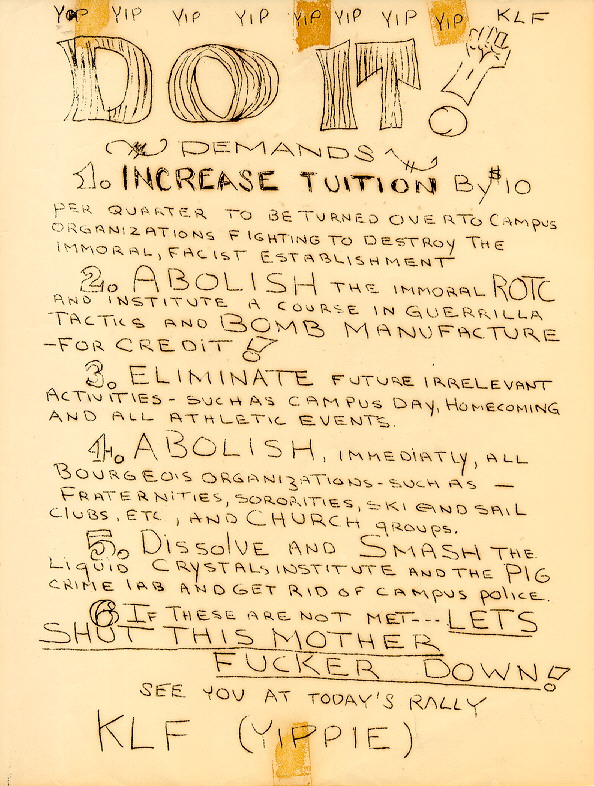 YIP YIP YIP YIP YIP YIP YIP YIP KLF
DO IT!
DEMANDS
1. INCREASE TUITION By $10
PER QUARTER TO BE TURNED OVER TO CAMPUS
ORGANIZATIONS FIGHTING TO DESTROY THE
IMMORAL, FACIST ESTABLISHMENT
2. ABOLISH THE IMMORAL ROTC
AND INSTITUTE A COURSE IN GUERRILLA
TACTICS AND BOMB MANUFACTURE
-FOR CREDIT!
3. ELIMINATE FUTURE IRRELEVANT
ACTIVITIES - SUCH AS CAMPUS DAY, HOMECOMING
AND ALL ATHLETIC EVENTS.
4. ABOLISH, IMMEDIATLY, ALL
BOURGEOIS ORGANIZATIONS - SUCH AS —
FRATERNITIES, SORORITIES, SKI AND SAIL
CLUBS, ETC, AND CHURCH groups.
5. DISSOLVE AND SMASH THE
LIQUID CRYSTALS INSTITUTE AND THE PIG
CRIME LAB AND GET RID OF CAMPUS POLICE.
6 IF THESE ARE NOT MET --- LETS
SHUT THIS MOTHER
FUCKER DOWN!
SEE YOU AT TODAY'S RALLY
KLF (YIPPIE)